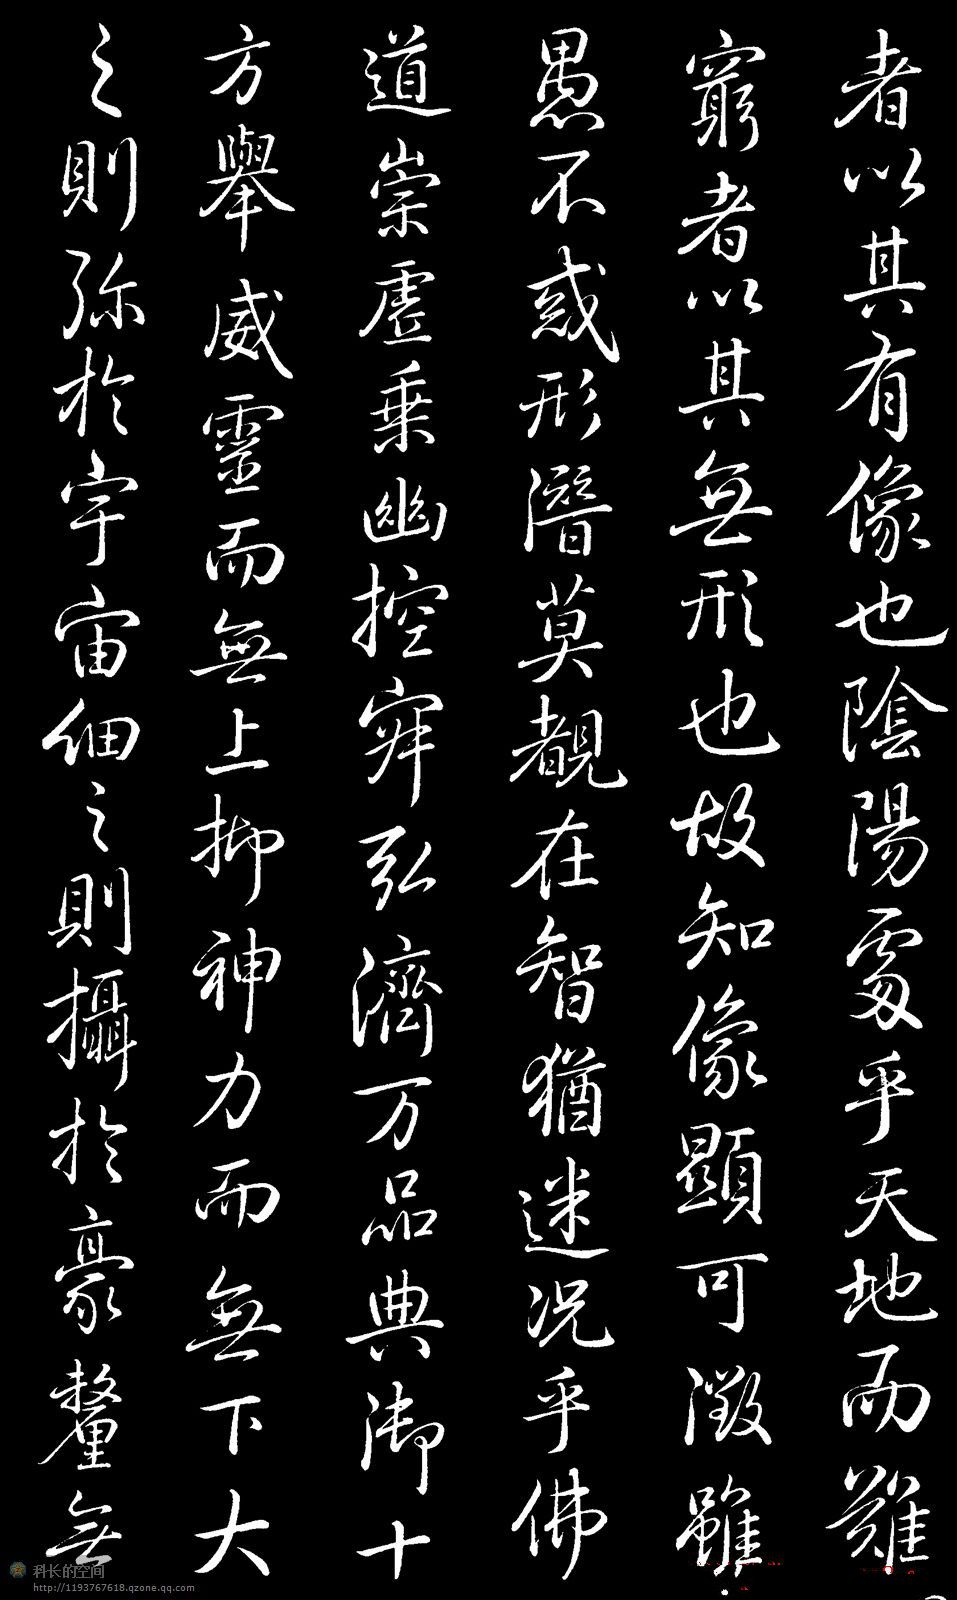 者以其有像也陰陽處乎天地而難
窮者以其無形也故知像顯可徵雖
愚不惑形潛莫覩在智猶迷况乎佛
道崇虛乗幽控寂弘濟万品典御十
方舉威靈而無上抑神力而無下大
之則弥於宇宙細之則攝於豪釐無
科长的空间
http://1193767618.qzone.qq.com